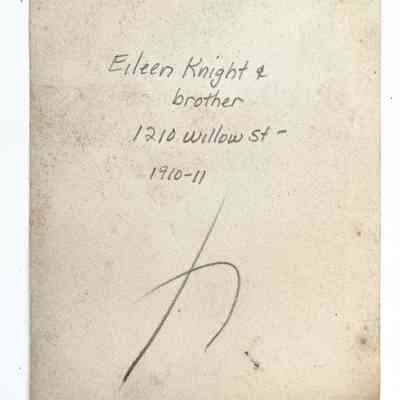 Eileen Knight &
brother
1210 Willow St -
1910-11